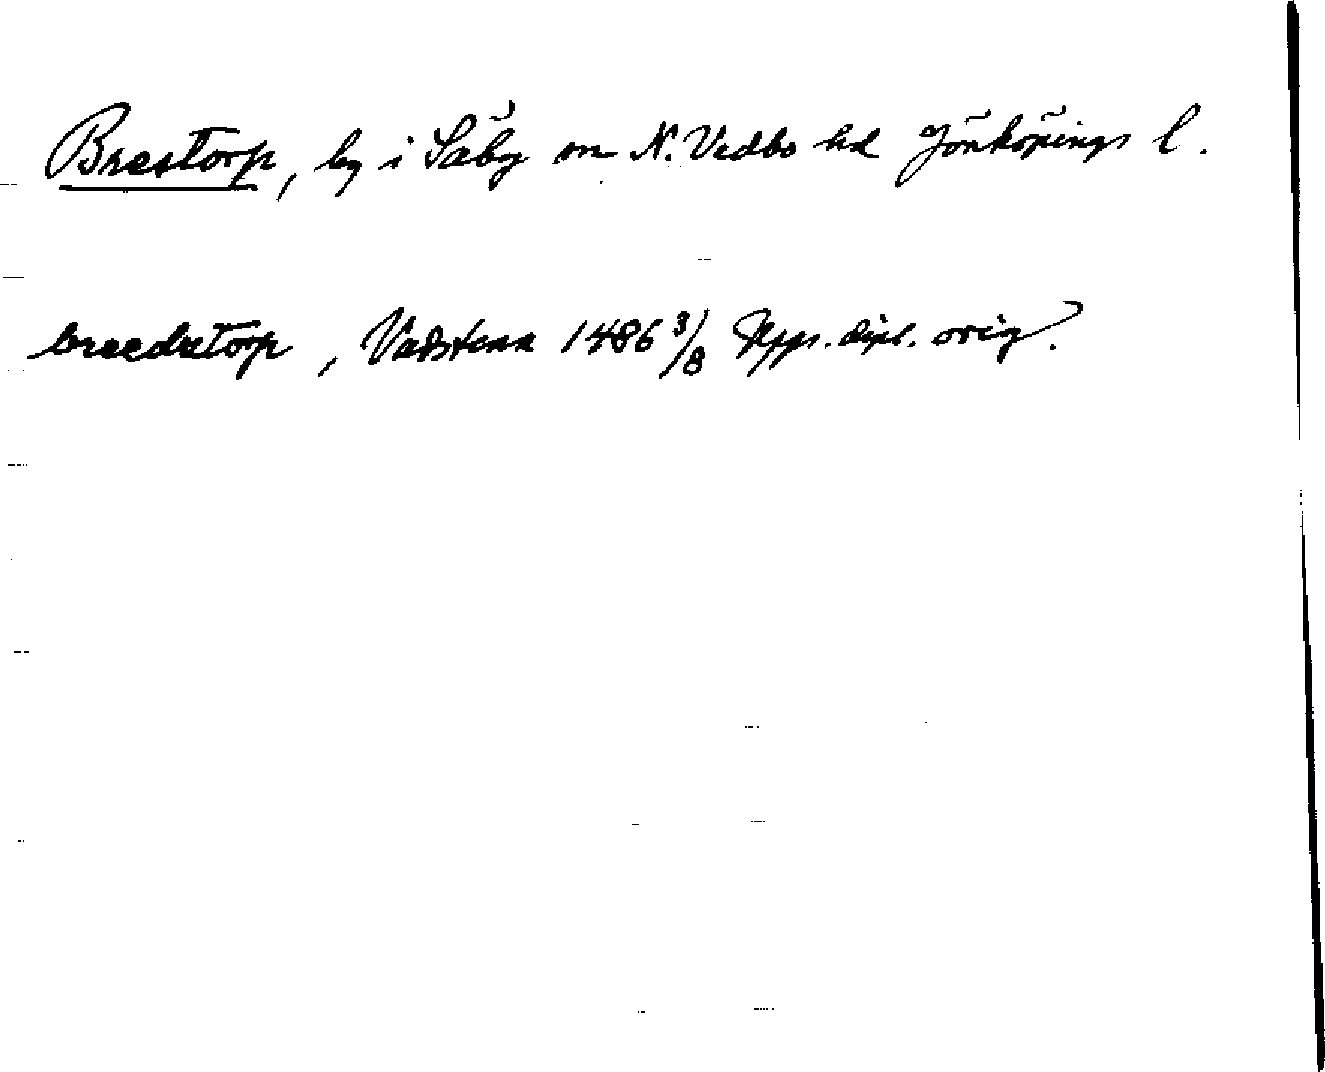 Brestorp, by i Säby sn N. Vedbo hd Jönköpings l.
breedxtorp, Vadstena 1486 3/8 Upps. dipl. orig.